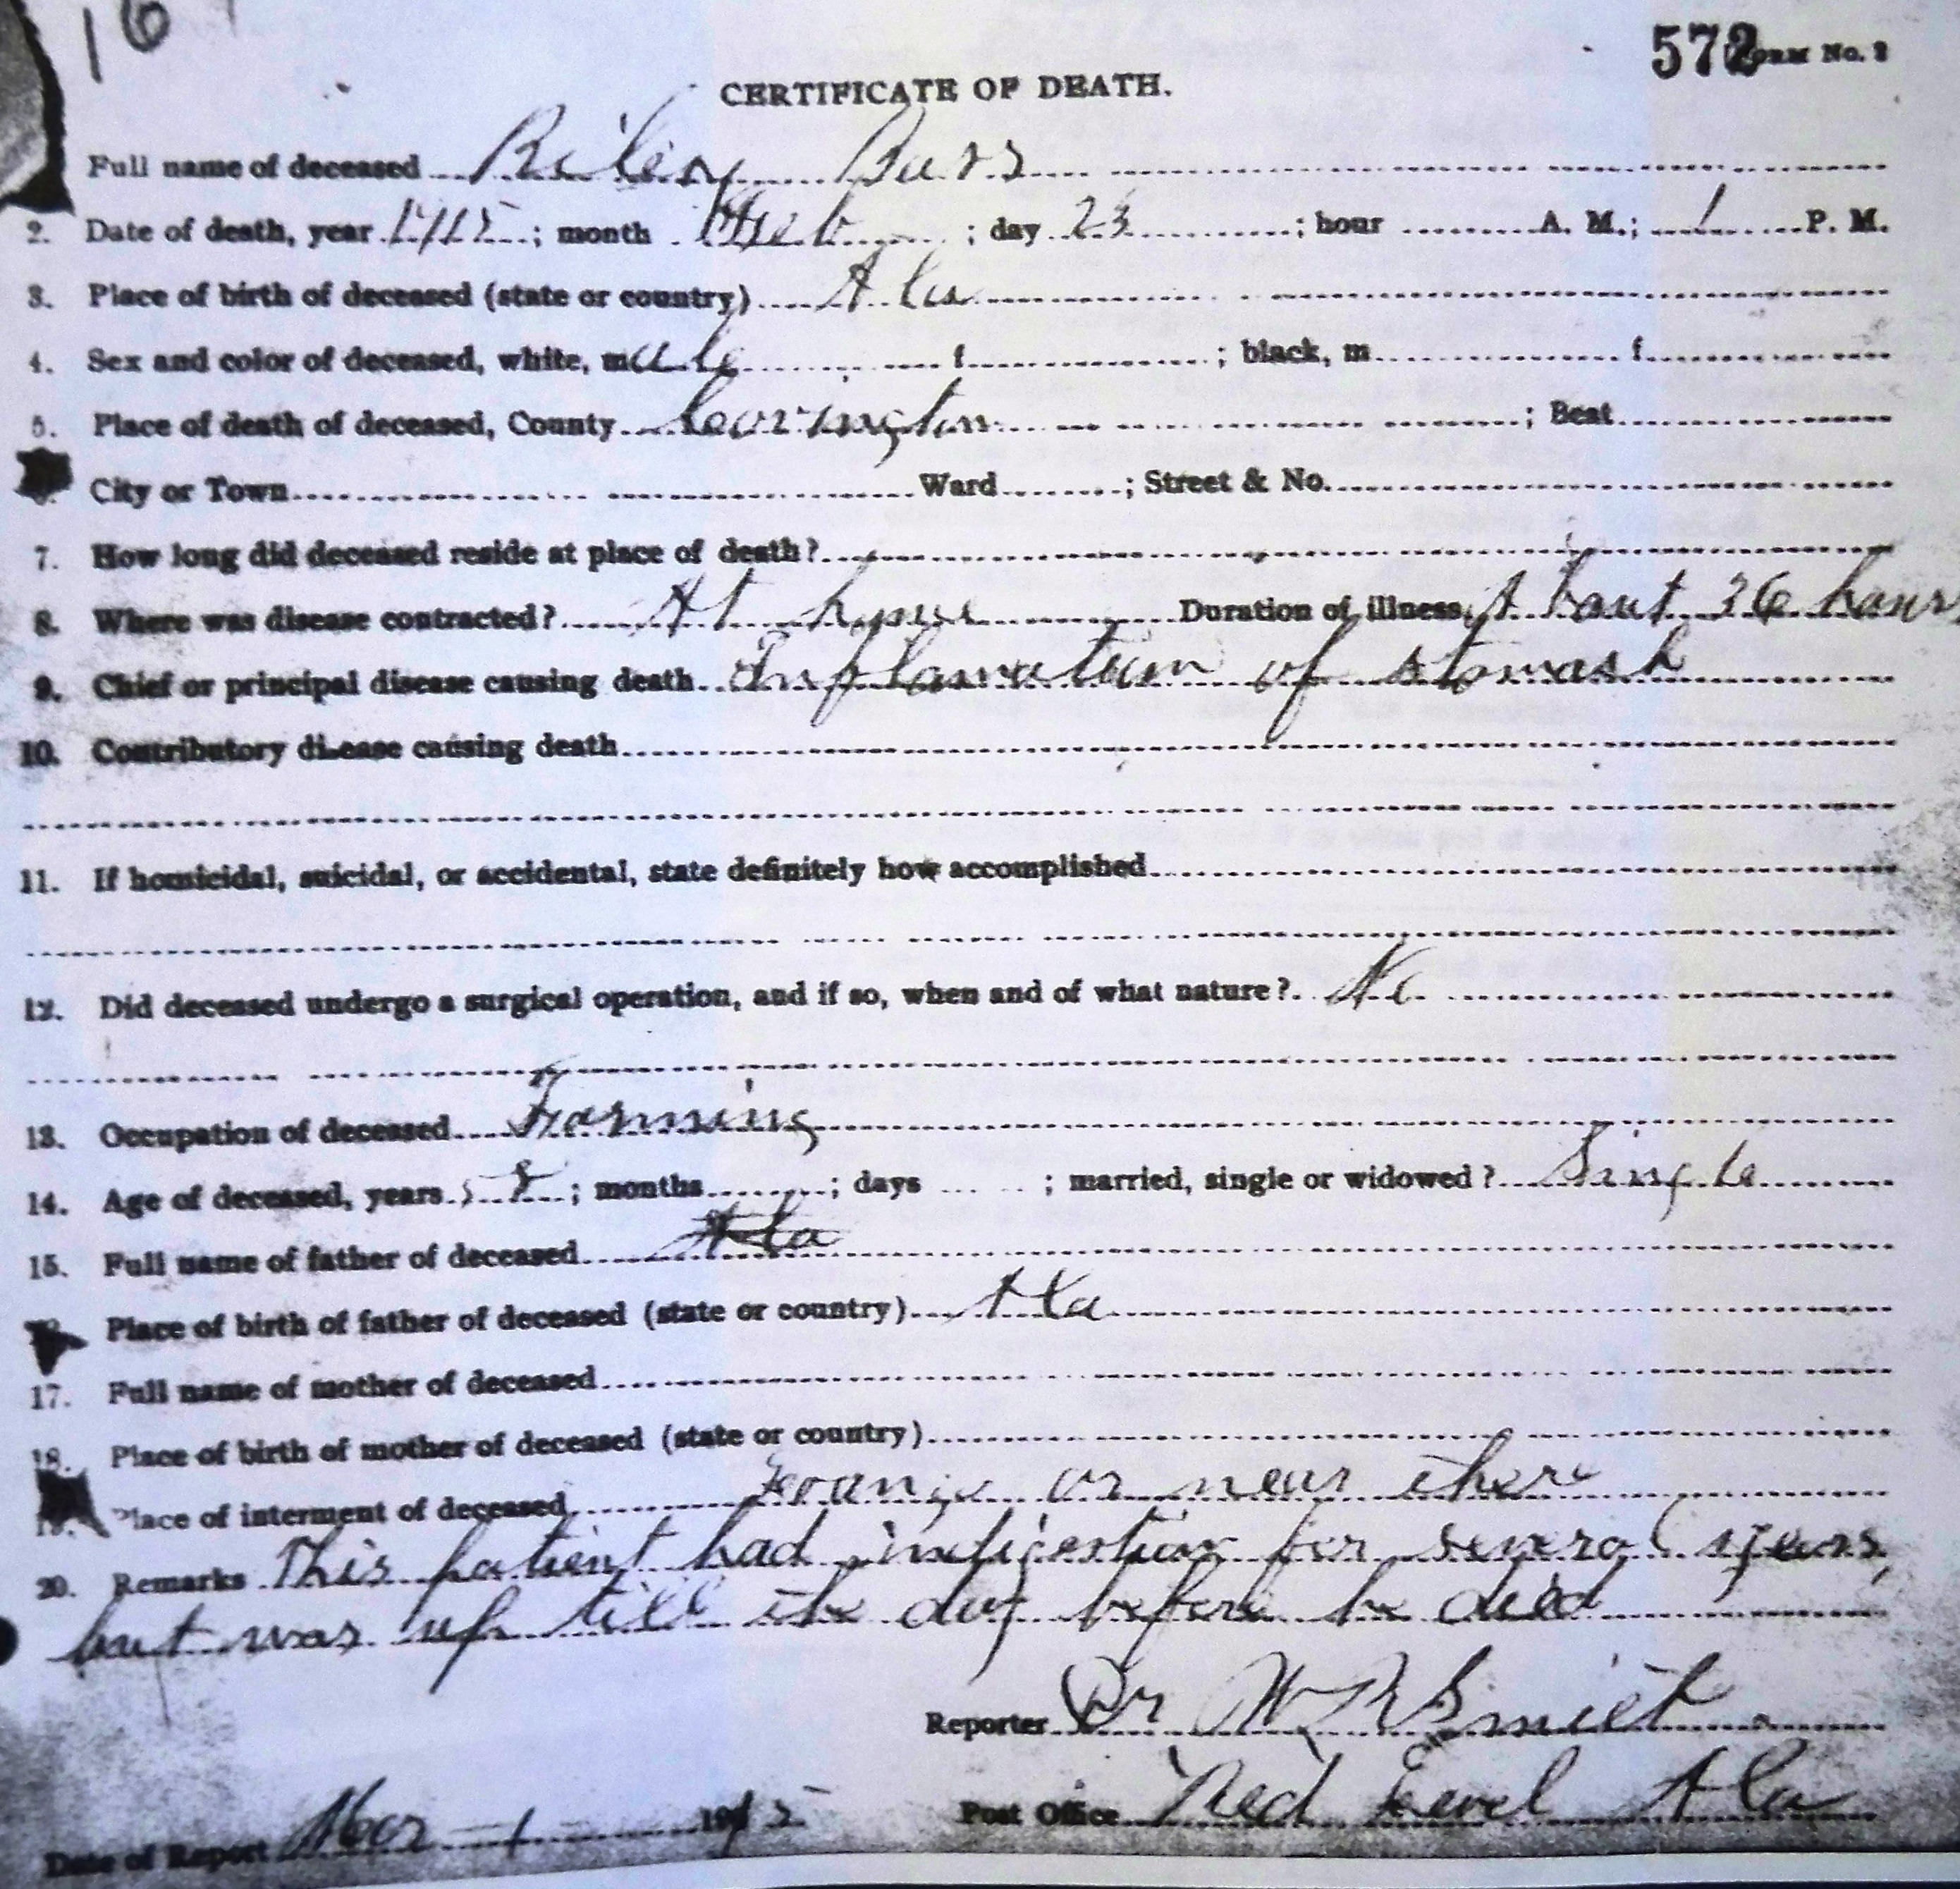 16
572 FORM No. 2
CERTIFICATE OF DEATH.
Full name of deceased Riley
2. Date of death, year 1915; month Feb; day 23; hour A. M.; 1 P. M.
3. Place of birth of deceased (state or country) Ala
4. Sex and color of deceased, white, male f ; black, m f
5. Place of death of deceased, County Covington ; Beat
City or Town Ward ; Street & No.
7. How long did deceased reside at place of death?
8. Where was disease contracted? At home Duration of illness About 36 hours
9. Chief or principal disease causing death Inflamation of stomach
10. Contributory disease causing death
11. If homicidal, suicidal, or accidental, state definitely how accomplished
12. Did deceased undergo a surgical operation, and if so, when and of what nature? No
13. Occupation of deceased Farming
14. Age of deceased, years 58; months ; days ; married, single or widowed? Single
15. Full name of father of deceased Ala
Place of birth of father of deceased (state or country) Ala
17. Full name of mother of deceased
18. Place of birth of mother of deceased (state or country)
19. Place of interment of deceased or near there
20. Remarks This patient had indigestion for several years,
but was up till the day before he died
Reporter Dr W R Smith
Date of Report Mar 1 1915 Post Office Red Level Ala